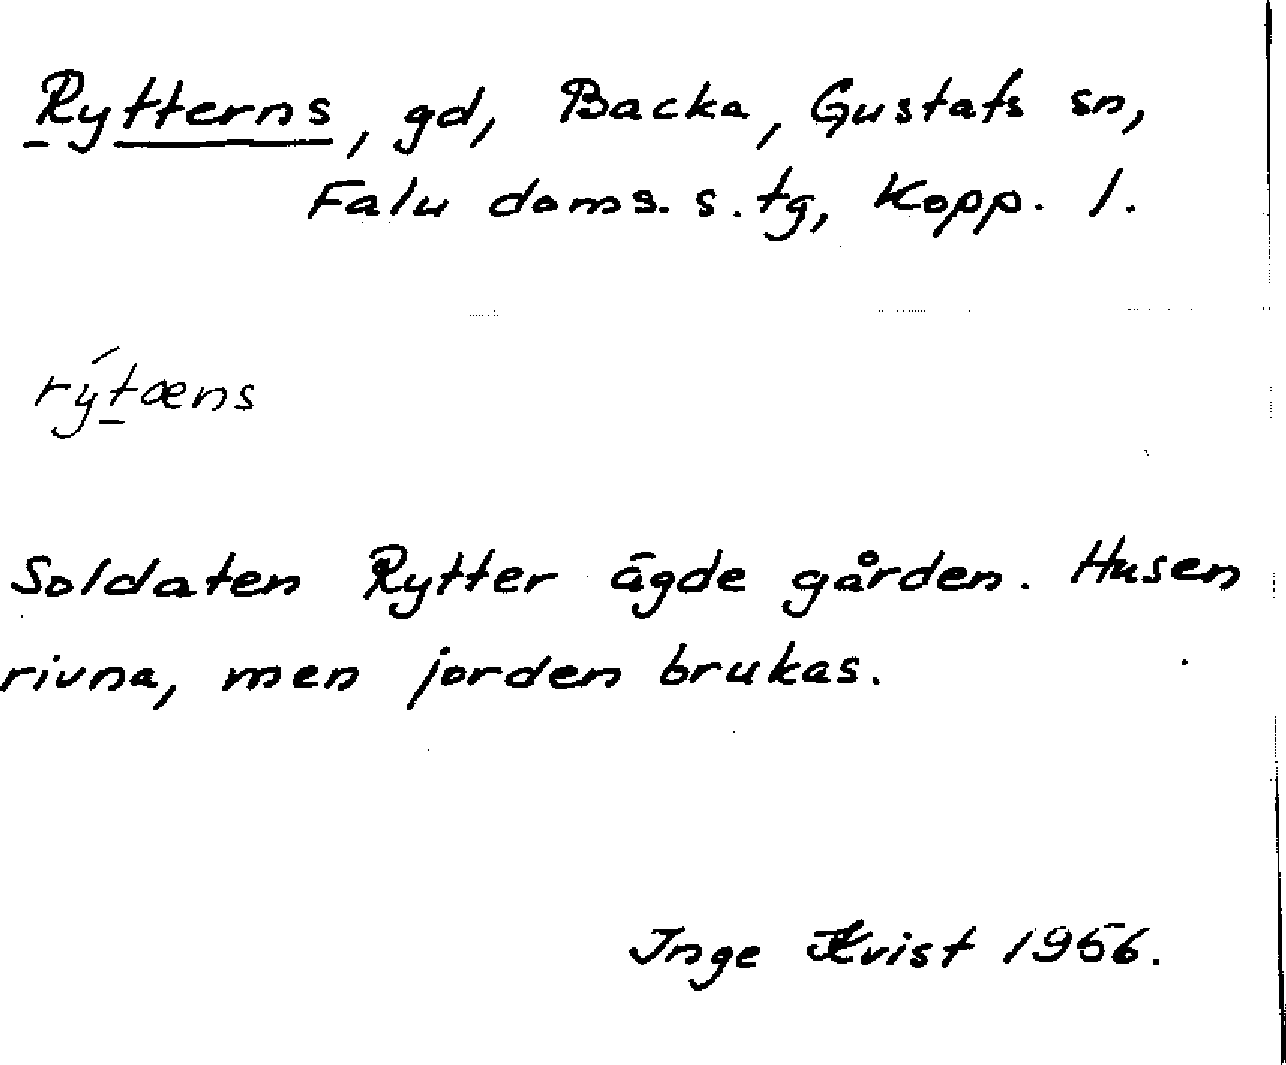 Rytterns, gd, Backa, Gustafs sn,
Falu doms. s. tg, Kopp. l.
rýtæns
Soldaten Rytter ägde gården. Husen
rivna, men jorden brukas.
Inge Kvist 1956.